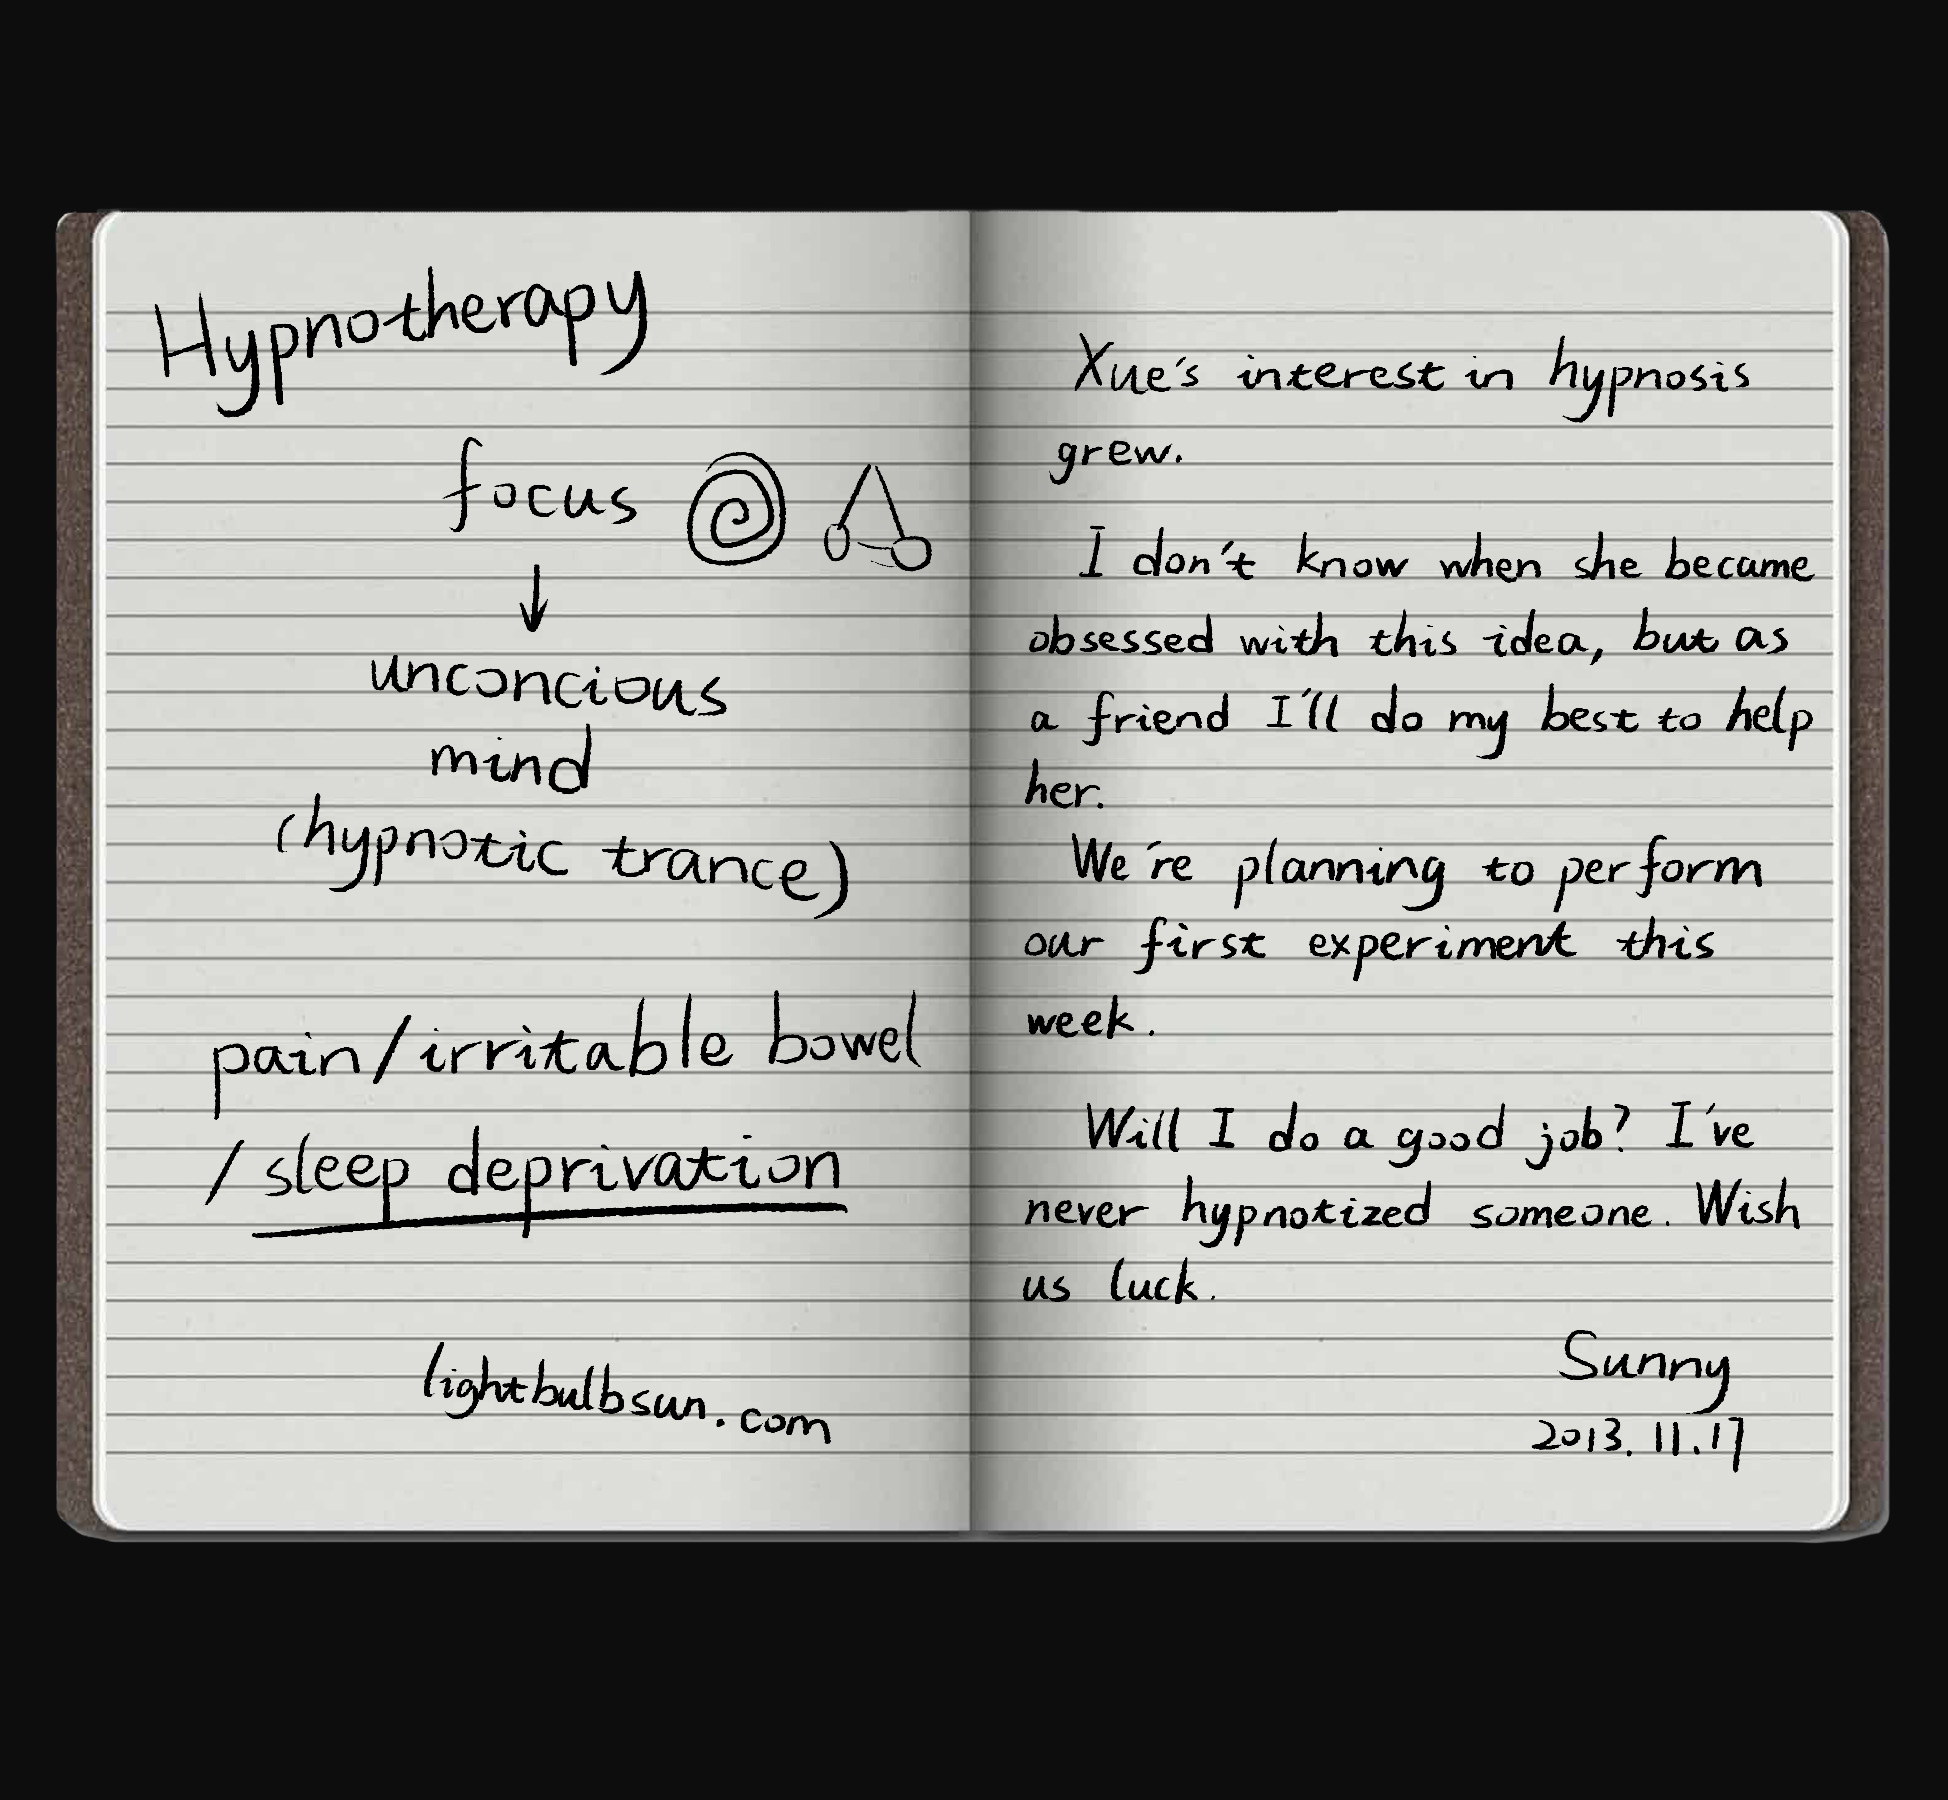 Hypnotherapy
focus
↓
unconcious
mind
(hypnotic trance)
pain/irritable bowel
/sleep deprivation
lightbulbsun.com
Xue's interest in hypnosis
grew.
I don't know when she became
obsessed with this idea, but as
a friend I'll do my best to help
her.
We're planning to perform
our first experiment this
week.
Will I do a good job? I've
never hypnotized someone. Wish
us luck.
Sunny
2013.11.17